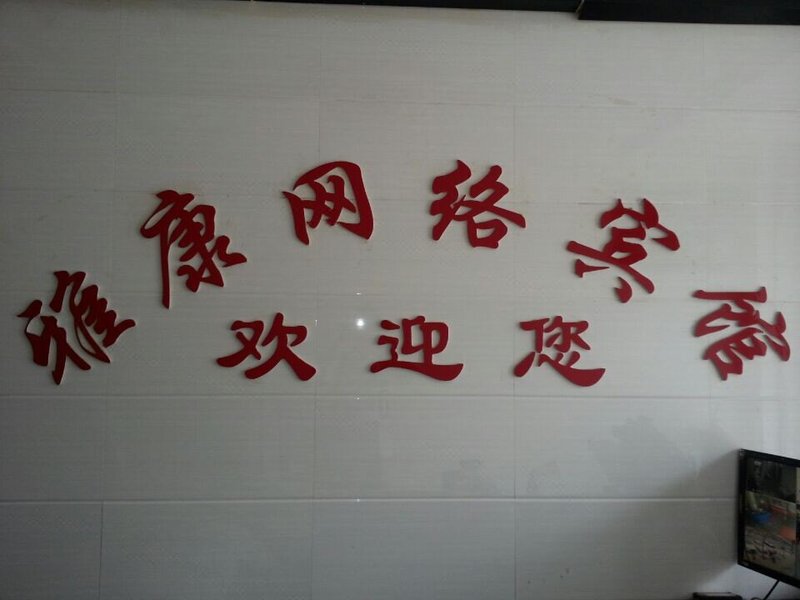 雅康网络宾馆
欢迎您